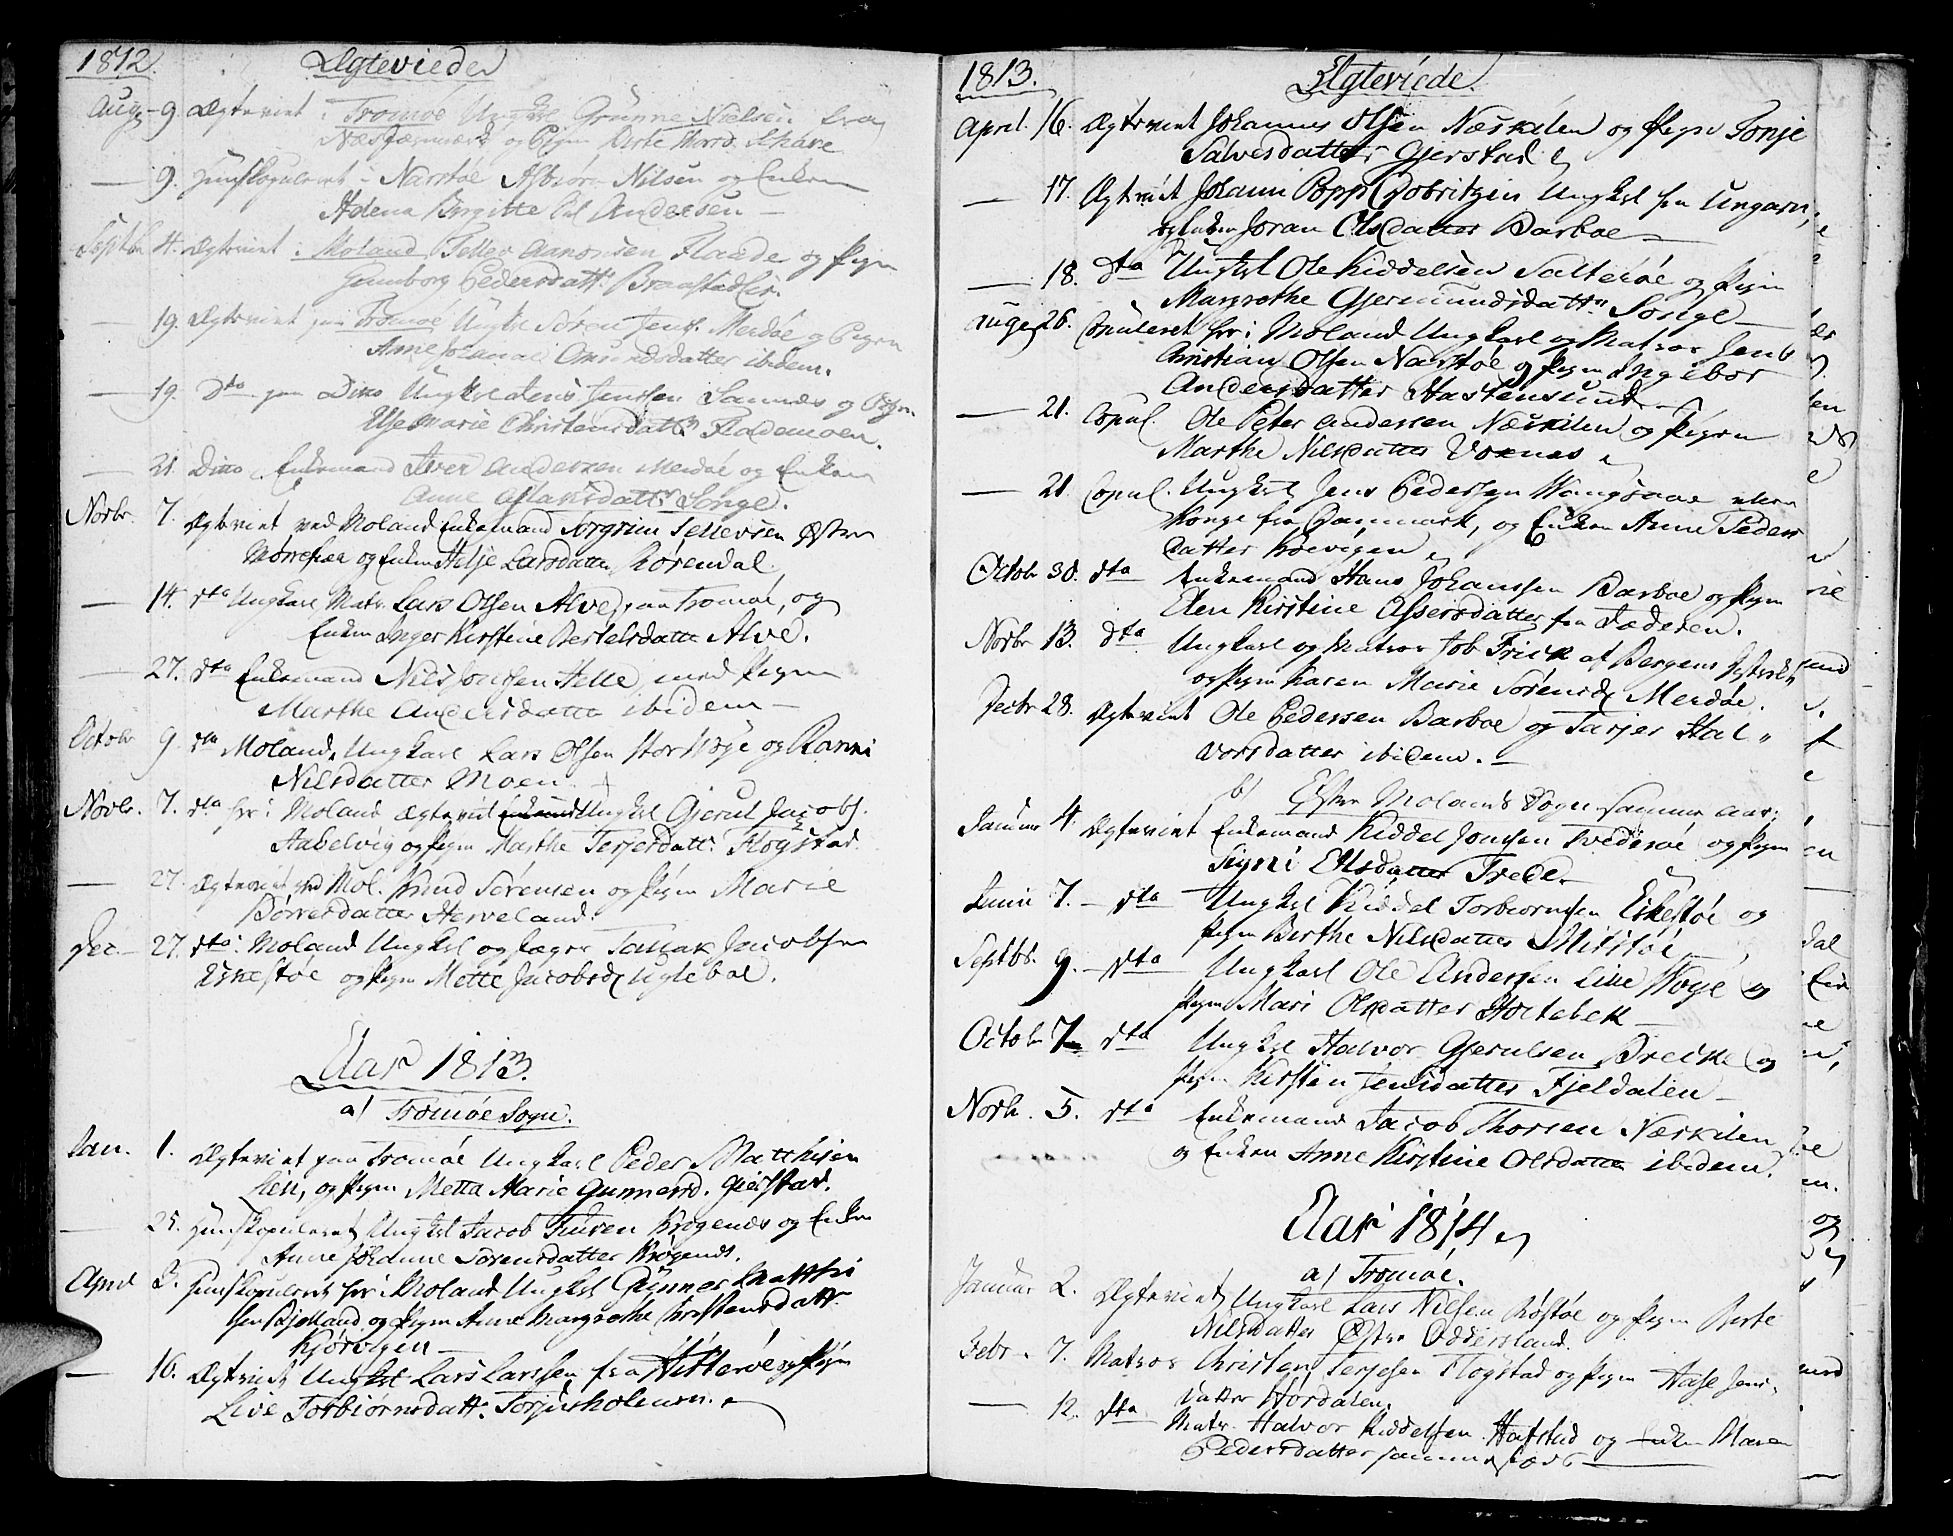 1812. Ægteviede
Aug. 9. Ægteviet i Tromøe Ungkrl Grunne Nielsen fra
Næs Jernværk og Pigen Berte Skare
— 9. Huuskopuleret i Narstøe Asbiør Nilsen og Enken
Adena Birgitte Andersen —
Septbr 4. Ægteviet i Moland Teller Aanonsen Flaade og Pigen
Gunnborg Pedersdattr
— 19. Ægteviet paa Tromøe Ungkrl Søren Jens. Merdøe og Pigen
Anne Johanne Omundsdatter ibidem.
— 19. Dto paa Ditto Ungkrl Jenssen Sannæs og Pigen
Else Marie Christensdattr Flademoen.
— 21. Ditto Enkemand Iver Andersen Merdøe og Enken
Anne Aslaksdattr Songe.
Novbr. 7. Ægteviet ved Moland Enkemand Jørgrim Tellevsen Østre
og Enken Helje Larsdatter Rørendal.
— 14. dto Ungkarl Matr. Lars Olsen Alve, paa Tromøe, og
Enken Inger Kirstine Bertelsdatter Alve.
— 27. dto Enkemand Nils Jonssen Helle med Pigen
Marthe Andersdatter ibidem —
Octobr 9. dto Moland, Ungkarl Lars Olsen Stor Woje og Ranni
Nilsdatter Moen.
Novbr. 7. dto her i Moland Ægteviet Ungkrl Gjerul Jacobs.
Aabelvig og Pigen Marthe Terjersdatt. Flogstad.
— 27. Ægteviet ved Mol. Knud Sørensen og Pigen Marie
Børresdatter Herveland.
Dec. — 27. dto: Moland Ungkrl og Jæger Tallak Jacobsen
Eskestøe og Pigen Mette Jacobsd Ugleboe.
Aar 1813.
a) Tromøe Sogn.
Jan. 1. Ægteviet paa Tromøe Ungkarl Peder Matthisen
Lien, og Pigen Metta Marie Gunnersd. Gjerstad.
— 25. Huuskopuleret Ungkrl Jacob Juren Krøgenæs og Enken
Anne Johanne Sørensdatter Krøgenes.
April 3. Huuskopuleret her i Moland Ungkrl Gunner Matthi
sen Bjelland og Pigen Anne Margrethe Kristensdattr
Kjørvigen —
— 16. Ægteviet Ungkrl Lars Larssen fra Hitterøe og Pigen
Live Torbiørnsdatt. Torjusholmen.
1813. Ægteviede.
April. 16. Ægteviet Johannes Olsen Næskilen og Pigen Tonje
Salvesdatter Gjerstad
— 17. Ægteviet Johann Popp Dobritzin Ungkrl fra Ungarn,
og Enken Joran Olsdatter Barboe —
— 18. dto Ungkrl Ole Kiddelsen Salterøe og Pigen
Margrethe Gjermundsdattr Songe —
Auge 26. Copuleret her i Moland Ungkarl og Matros Jens
Christian Olsen Narstøe og Pigen Ingebor
Andersdatter Hastensund —
— 21. Copul. Ole Peter Andersen Næskilen og Pigen
Marthe Nilsdatter Voxnæs
— 21. Copul. Ungkrl Jens Pedersen Wangsaae
fra Danmark, og Enken Anne Peders
datter Koevigen
Octobr 30. dto Enkemand Hans Johanssen Barboe og Pigen
Elen Kirstine Assersdatter fra Jæderen.
Novbr 13. dto Ungkarl og Matros Job Frick af Bergens
og Pigen Karen Marie Sørensd Merdøe.
Decbr 28. Ægteviet Ole Pedersen Barboe og Tarjer Hal„
vorsdatter ibidem. —
b) Østre Molands Sogn samme Aar.
Januar 4. Ægteviet Enkemand Kiddel Jonssen Tvedesøe og Pigen
Signi Ellsdatter Trede.
Junii 7. — dto Ungkrl Kiddel Torbiørnsen Eskestøe og
Pigen Birthe Nilsdatter —
Septbr. 9. — dto Ungkarl Ole Andersen Lille Woje og
Pigen Mari Olsdatter Holtebek —
Octobr 7 dto Ungkrl Halvor Gjerulsen Breikke og
Pigen Kirsten Jensdatter Fjeldalen —
Novbr. 5. dto Enkemand Jacob Thorsen Næskilen
og Enken Anne Kirstine Olsdatter ibidem.
Aar 1814
a) Tromøe.
Januar 2. Ægteviet Ungkarl Lars Nilsen Røstøe og Pigen Berte
Nilsdatter Østre Oddersland.
Febr. 7. Matros Christen Terjesen Flogstad og Pigen Aase Jens„
datter Hordalen.
— 12. dto Matr. Halvor Kiddelsen Hafstad og Enken Maren
Pedersdatter sammesteds —